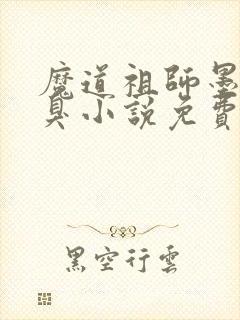 魔道祖師墨
臭小說免費
黑空行雲